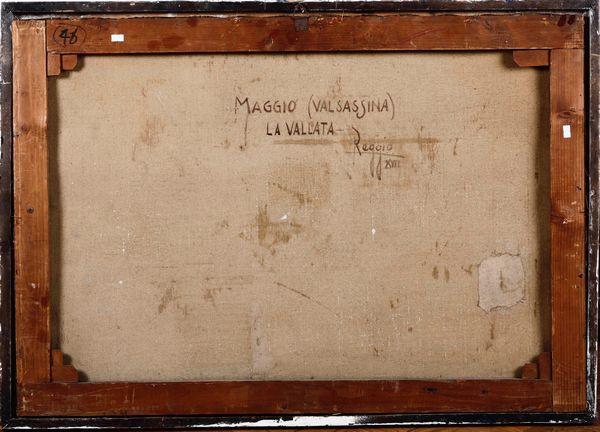 48
MAGGIO (VALSASSINA)
LA VALLATA
Reggio
XVII